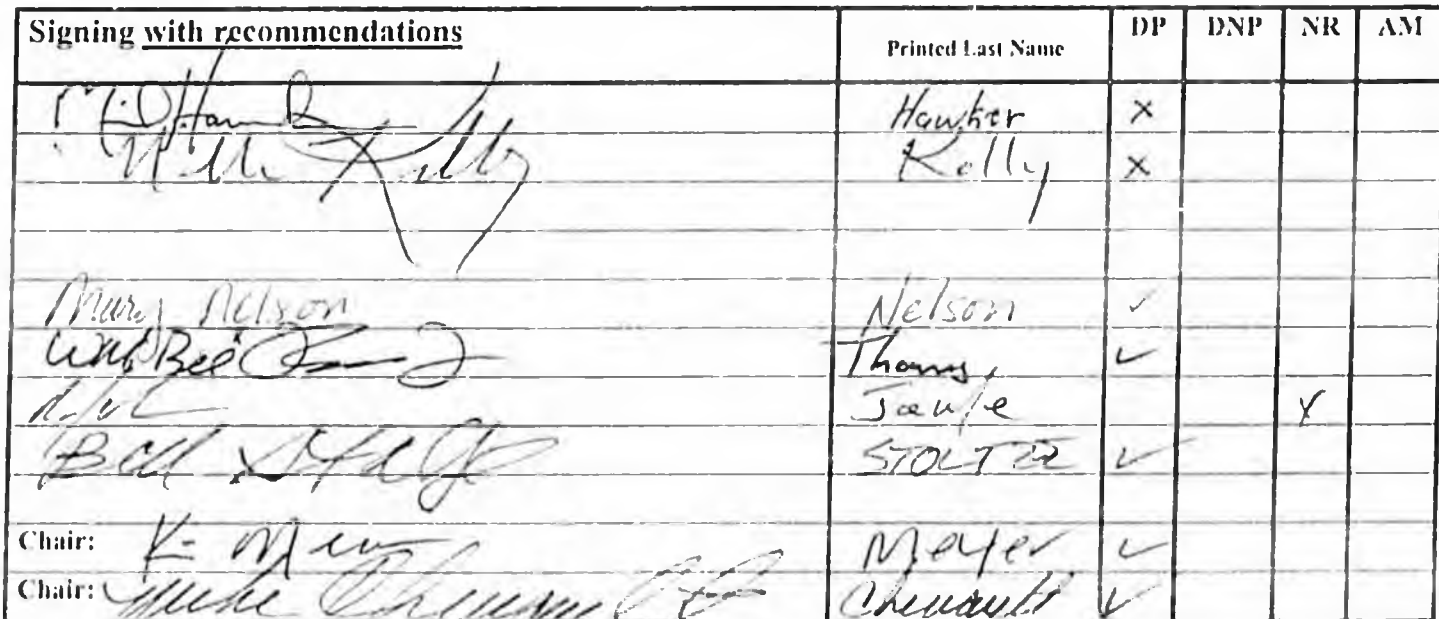 Signing with recommendations Printed Last Name DP DNP NR AM
Hawker X
Kelly Kelly X
Mary Nelson Nelson ✓
Thomas, ✓
Joule X
Bill Stoltze STOLTZE ✓
Chair: K. Meyer Meyer ✓
Chair: Mike Chenault Chenault ✓